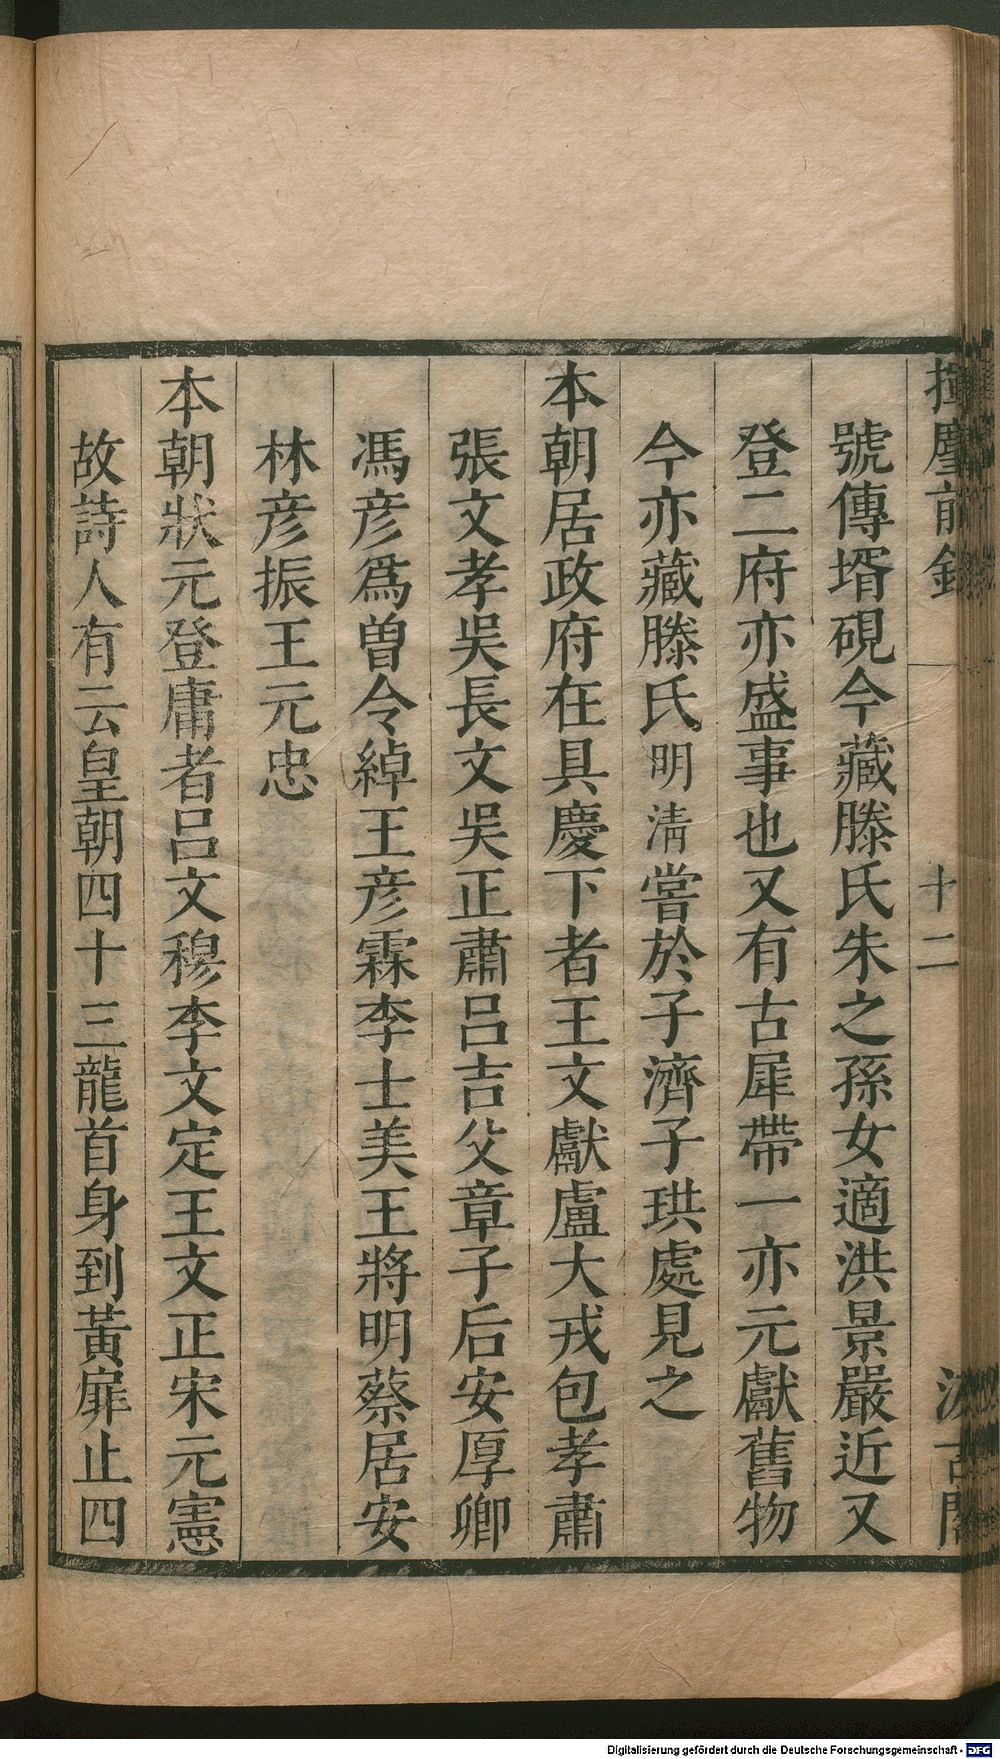 揮麈前錄 十二 汲古閣
號傳壻硯今藏滕氏朱之孫女適洪景嚴近又
登二府亦盛事也又有古犀帶一亦元獻舊物
今亦藏滕氏明清嘗於子濟子珙處見之
本朝居政府在具慶下者王文獻盧大戎包孝肅
張文孝吳長文吳正肅呂吉父章子后安厚卿
馮彥爲曾令綽王彥霖李士美王將明蔡居安
林彥振王元忠
本朝狀元登庸者呂文穆李文定王文正宋元憲
故詩人有云皇朝四十三龍首身到黃扉止四
Digitalisierung gefördert durch die Deutsche Forschungsgemeinschaft - DFG